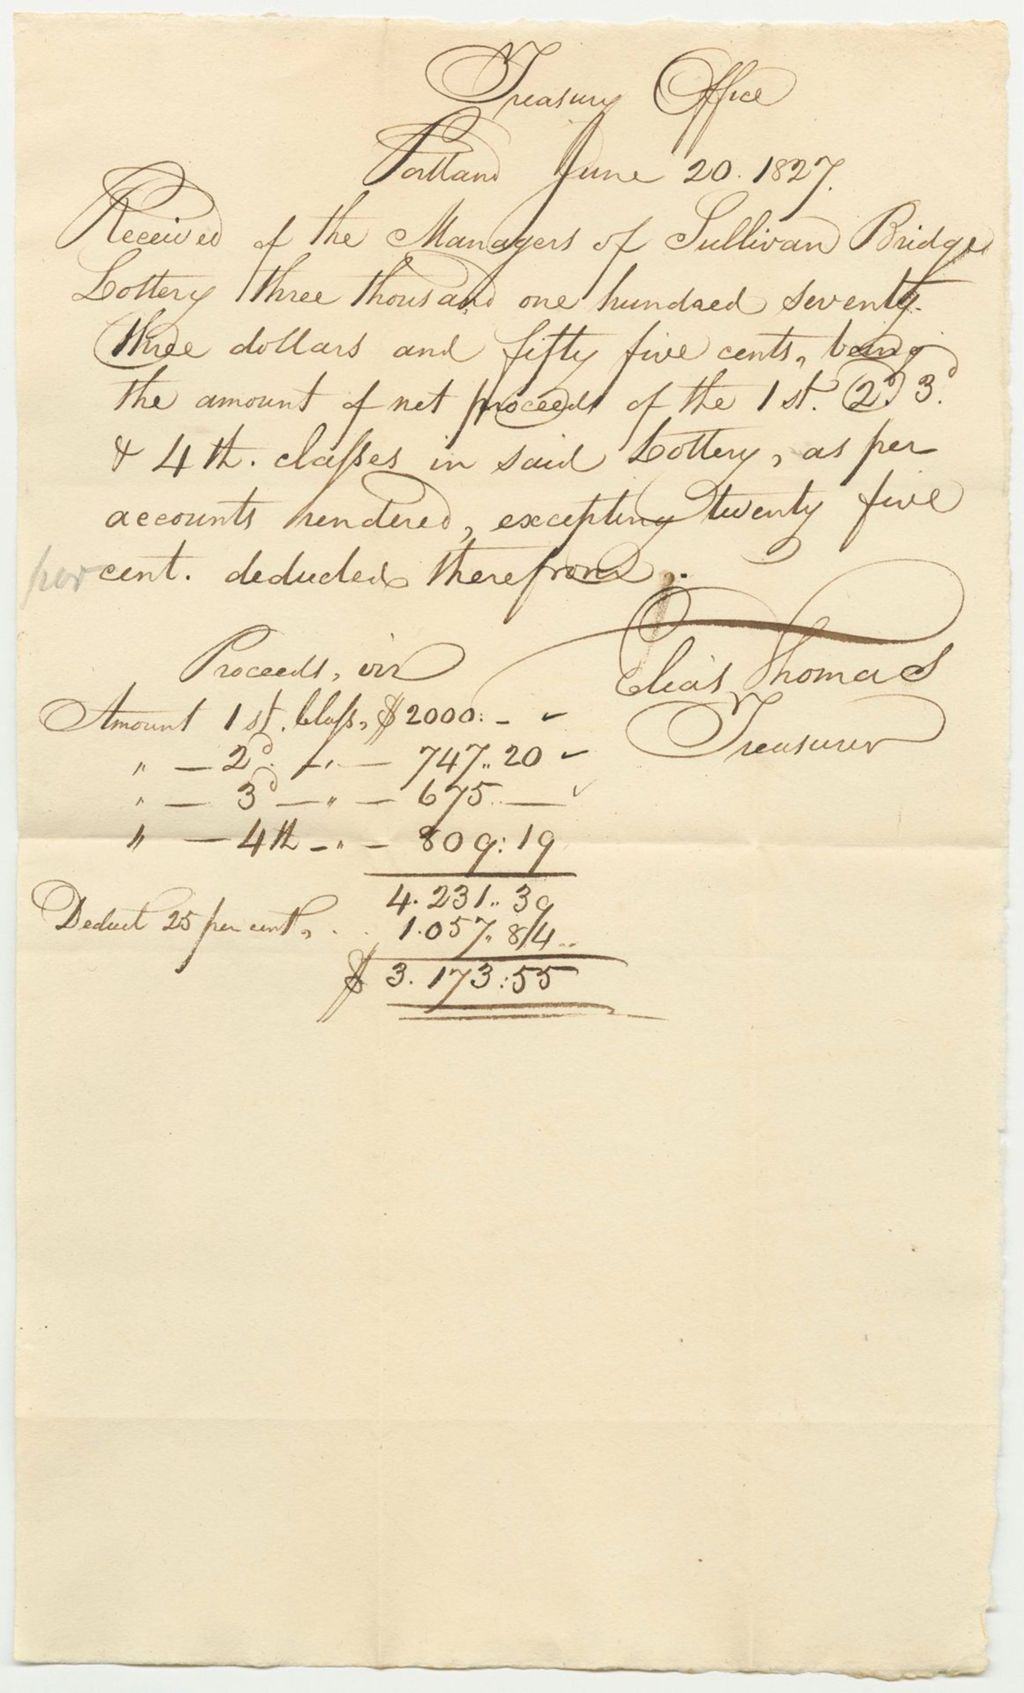 Treasury Office
Portland June 20. 1827.
Received of the Managers of Sullivan Bridge
Lottery three thousand one hundred seventy-
three dollars and fifty five cents, being
the amount of net proceeds of the 1st. 2d 3d.
& 4th. classes in said Lottery, as per
accounts rendered, excepting twenty five
per cent. deducted therefrom.
Elias Thomas
Treasurer
Proceeds, viz
Amount 1st. Class, $ 2000: -
" — 2d. — " — 747.. 20
" — 3d — " — 675.. —
" — 4th - " - 809: 19
4.231.. 39
Deduct 25 per cent, . . 1.057.. 84..
$ 3.173:55